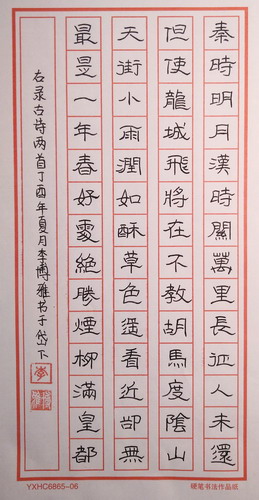 秦時明月漢時關萬里長征人未還
但使龍城飛將在不教胡馬度陰山
天街小雨潤如酥草色遥看近卻無
最是一年春好處絕勝煙柳滿皇都
右录古诗两首丁酉年夏月李博雅书于岱下
李
YXHC6865-06
硬笔书法作品纸